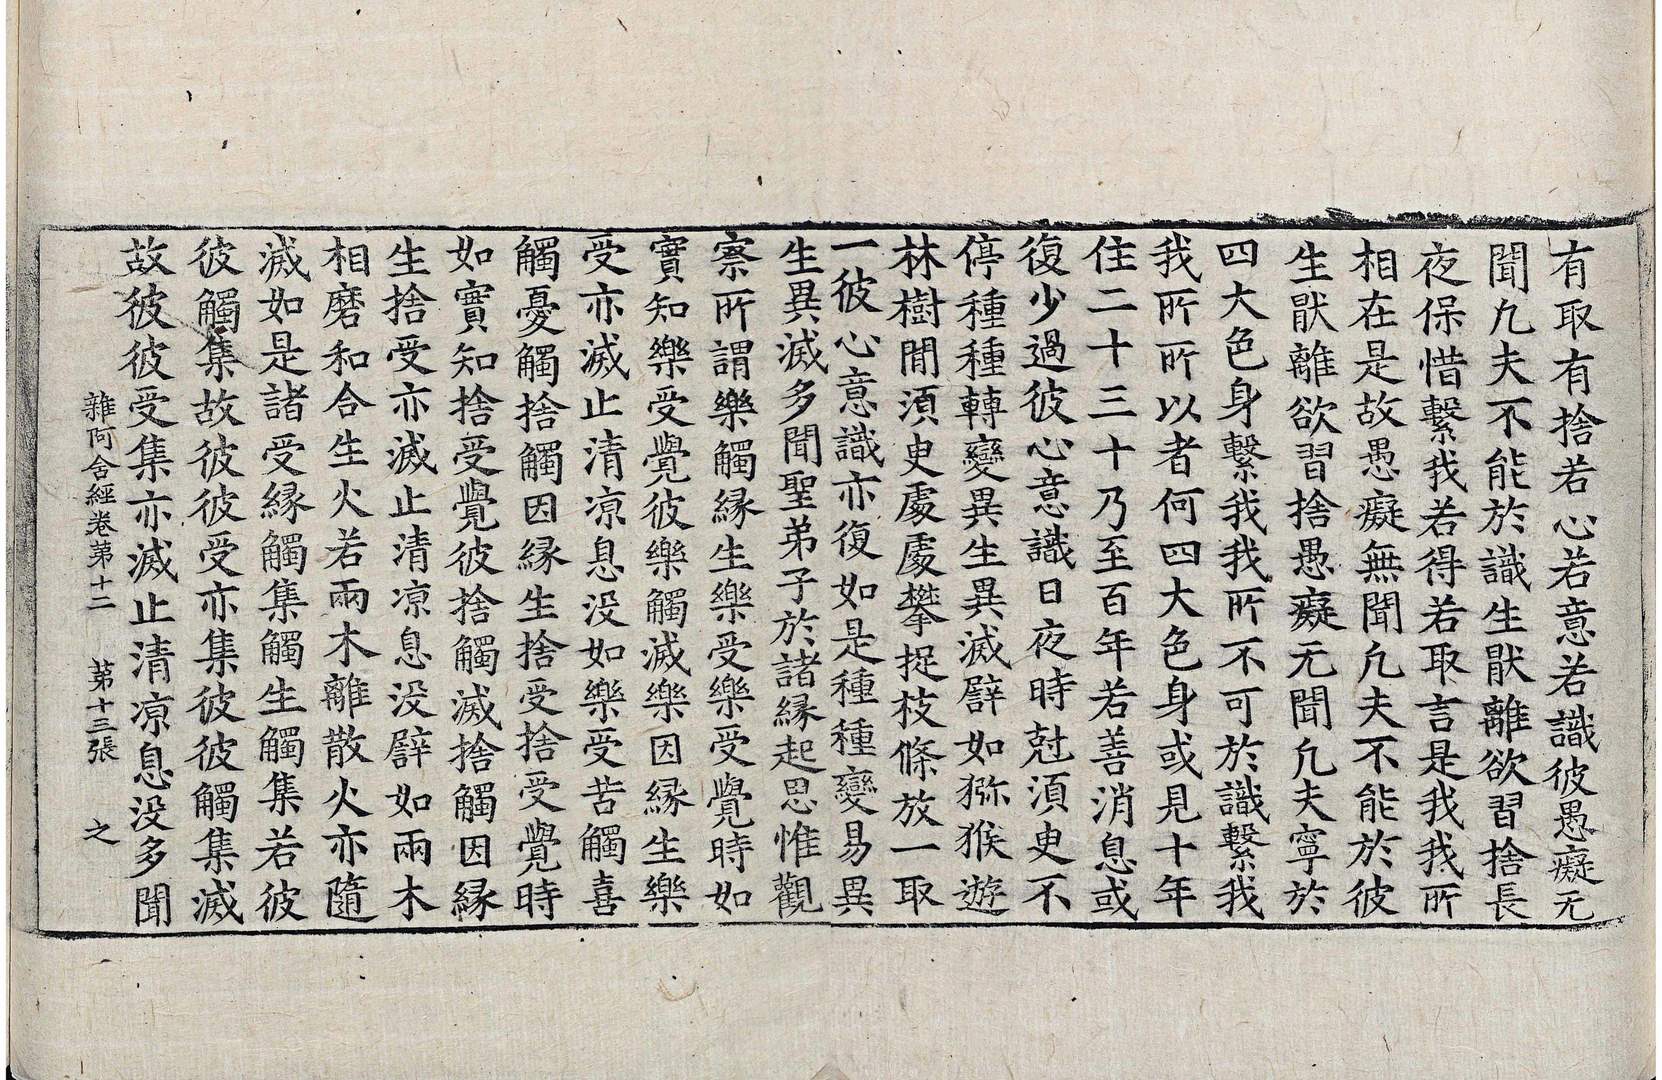 有取有捨若心若意若識彼愚癡无
聞凡夫不能於識生猒離欲習捨長
夜保惜繫我若得若取言是我我所
相在是故愚癡無聞凡夫不能於彼
生猒離欲習捨愚癡无聞凡夫寧於
四大色身繫我我所不可於識繫我
我所所以者何四大色身或見十年
住二十三十乃至百年若善消息或
復少過彼心意識日夜時尅湏臾不
停種種轉變異生異滅譬如獼猴遊
林樹閒湏臾處處攀捉枝條放一取
一彼心意識亦復如是種種變易異
生異滅多聞聖弟子於諸緣起思惟觀
察所謂樂觸緣生樂受樂受覺時如
實知樂受覺彼樂觸滅樂因緣生樂
受亦滅止清凉息没如樂受苦觸喜
觸憂觸捨觸因緣生捨受捨受覺時
如實知捨受覺彼捨觸滅捨觸因緣
生捨受亦滅止清凉息没譬如兩木
相磨和合生火若兩木離散火亦隨
滅如是諸受緣觸集觸生觸集若彼
彼觸集故彼彼受亦集彼彼觸集滅
故彼彼受集亦滅止清凉息没多聞
雜阿含經卷第十二 第十三張 之